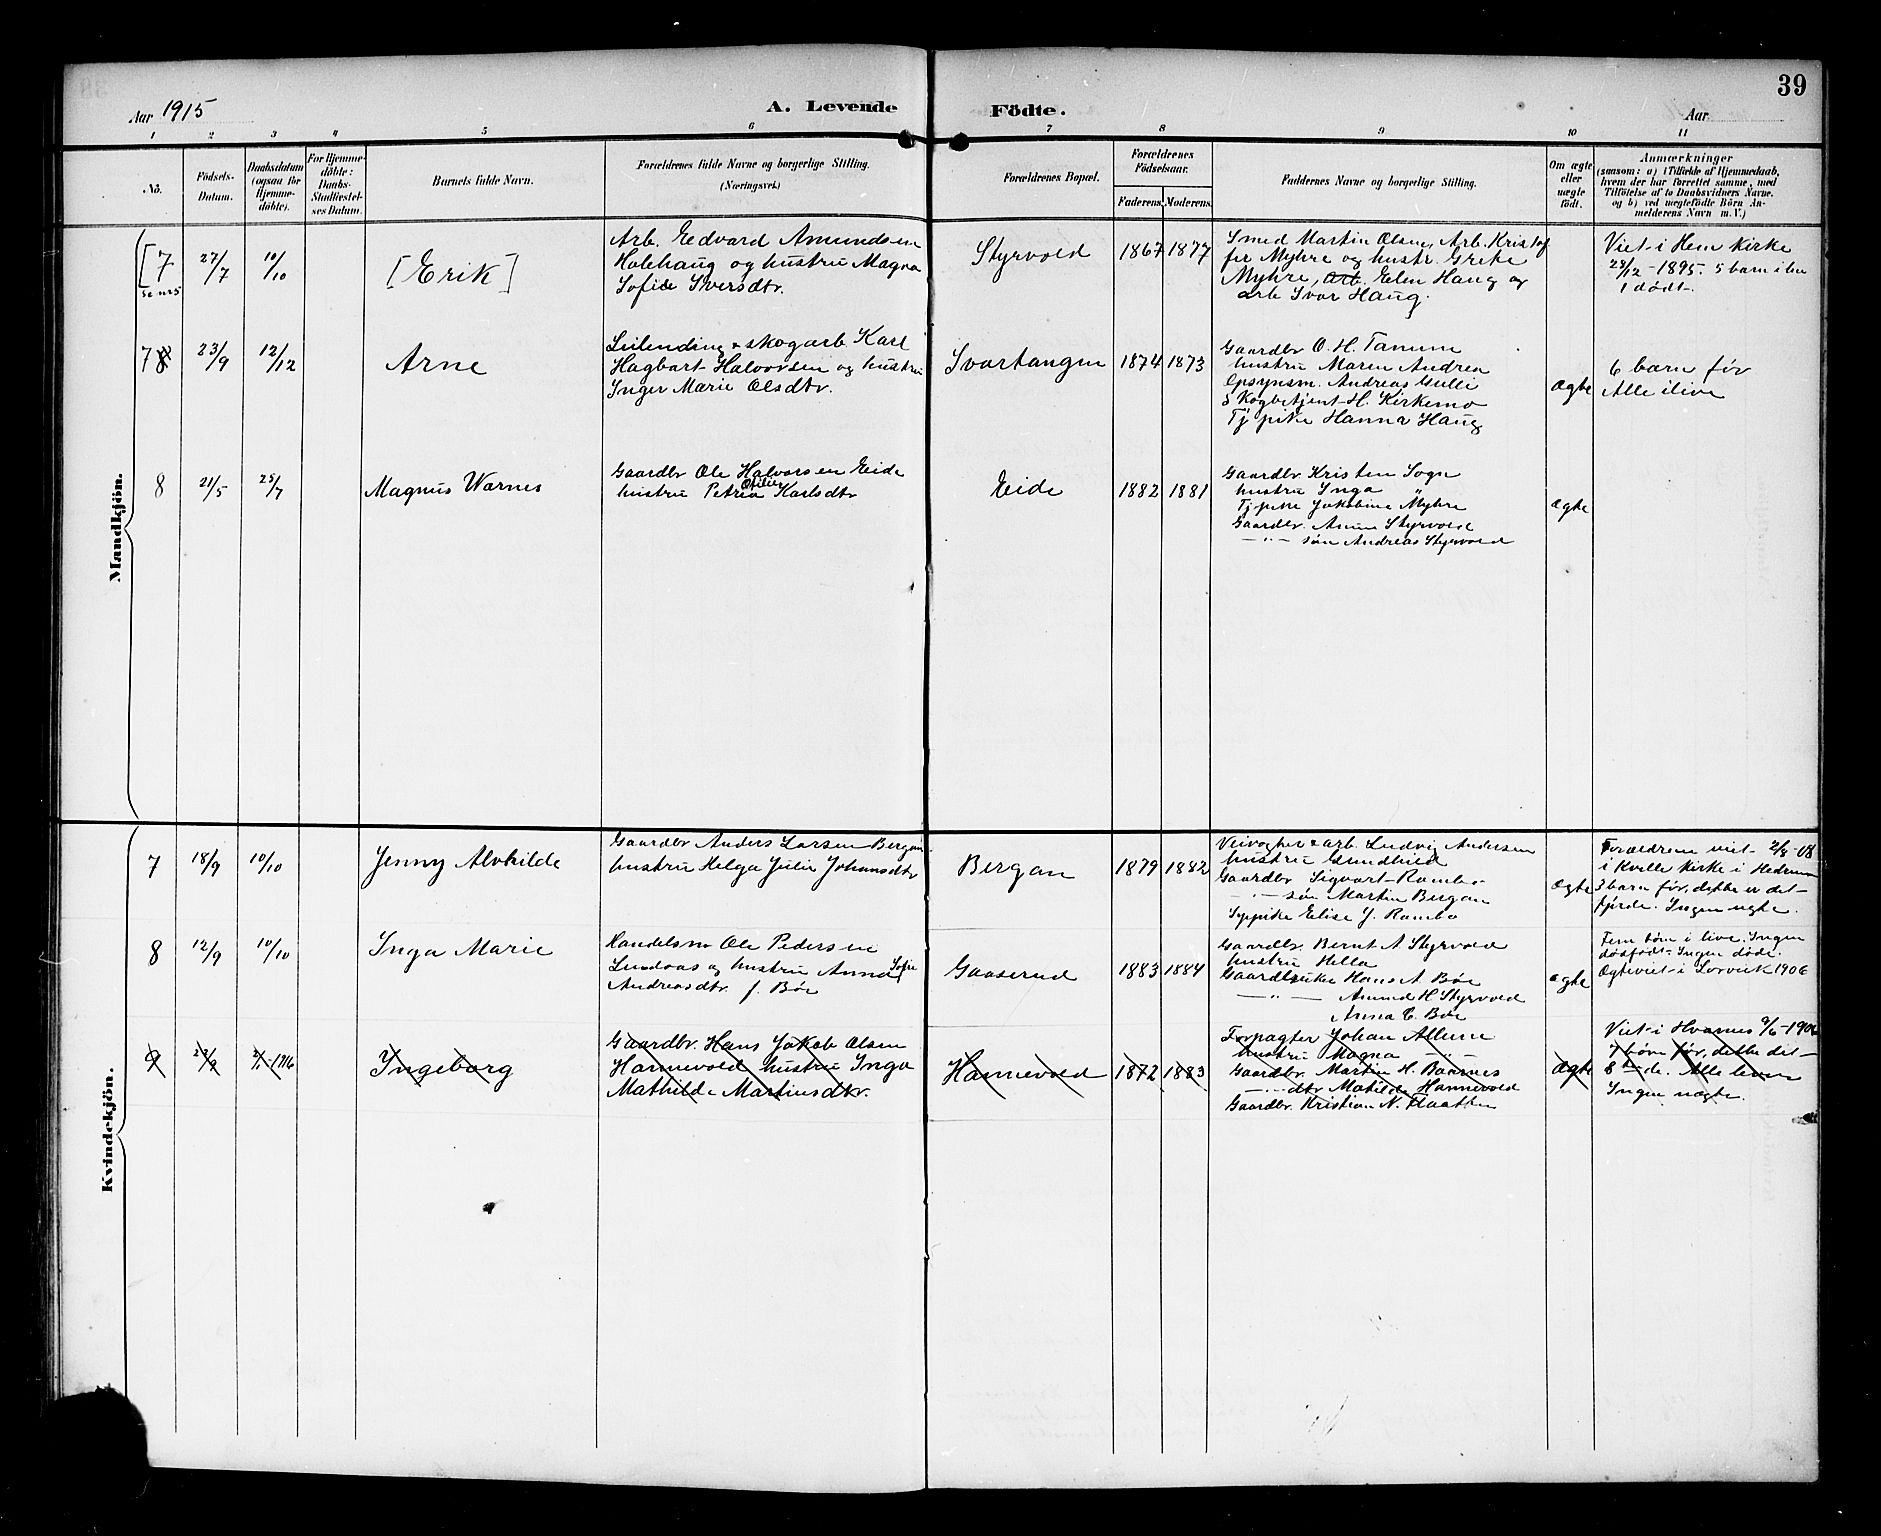 39
Aar 1915
A. Levende Födte.
Aar
1 2 3 4 5 6 7 8 9 10 11
No.
Födsels-Datum.
Daabsdatum (ogsaa for Hjemme-döbte).
For Hjemme-döbte: Daabs-Stadfæstel-ses Datum.
Barnets fulde Navn.
Forældrenes fulde Navne og borgerlige Stilling. (Næringsvek.)
Forældrenes Bopæl.
Forældrenes Födselsaar.
Faderens. Moderens.
Faddernes Navne og borgerlige Stilling.
Om ægte eller uægte födt.
Anmærkninger
(saasom: a) i Tilfælde af Hjemmedaab,
hvem der har forrettet samme, med
Tilföielse af to Daabsvidners Navne.
og b) ved uægtefödte Börn An-
melderens Navn m. V.)
Mandkjön.
[7
se nr 5
27/7
10/10
[Erik]
Arb. Edvard Amundsen
Holehaug og hustru Magna
Sofie Iversdtr.
Styrvold
1867 1877
Smed Martin Olsen, Arb. Kristof
fer Myhre og hustr. Grete
Myhre, arb. Elen Haug og
arb Ivar Haug.
Viet i Hem kirke
28/12 - 1895. 5 barn i live
1 dødt.
7 8
23/9
12/12
Arne
Leilending & skogarb Karl
Hagbart Halvorsen og hustru
Inger Marie Olsdtr.
Svartangen
1874 1873
Gaardbr O. H. Tanum
hustru Maren Andrea
Opsynsm. Andreas Gulli
Skogbetjent H. Kirkemo
Tj. pike Hanna Haug
Ægte
6 barn før
Alle ilive
8
21/5
25/7
Magnus Warnes
Gaardbr Ole Halvorsen Eide
hustru Petra Otilie Karlsdtr
Eide
1882 1881
Gaardbr. Kristen Sogn
hustru Inga "
Tj. pike Jakobine Myhre
Gaardbr. Styrvold
— " — søn Andreas Styrvold
Ægte
Kvindekjön.
7
18/9
10/10
Jenny Alvhilde
Gaardbr Anders Larsen Bergan
hustru Helga Julie Johansdtr
Bergan
1879 1882
Veivogter & arb. Ludvig Andersen
hustru Gundhild
Gaardbr Sigvart Rambo
— " — søn Martin Bergan
Sypike Elise J. Rambo
Ægte
Forældrene viet 2/8-08
i Kvelle kirke i Hedrum
3 barn før, dette er det
fjerde. Ingen uegte.
8
12/9
10/10
Inga Marie
Handelsm Ole Pedersen
Lundaas og hustru Anna Sofie
Andreasdtr f. Bøe
Gaaserud
1883 1884
Gaardbr. Bernt A Styrvold
hustru Hella
Gaardbruker Hans A Bøe
— " — Amund H Styrvold
Anna C. Bøe
ægte
Fem børn i live. Ingen
dødfødt. Ingen døde.
Ægteviet i Larvik 1906
9
1916
Ingeborg
Gaardbr. Hans Jakob Olsen
Hannevold hustru Inga
Mathilde Martinsdtr.
Hannevold
1872 1883
Forpagter Johan Allum
hustru Magna — " —
Gaardbr. Martin H. Baarnes
— " — dtr Matilde Hannevold
Gaardbr. Kristian N. Flaatten
Ægte
Viet i Hvarnes 9/6-1906
7 børn før, dette det
8 ende. Alle leven
Ingen uægte.